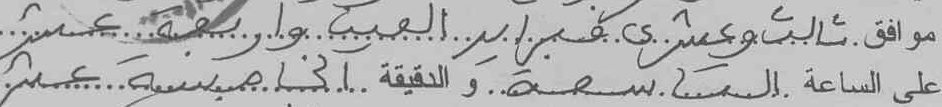 موافق ثالث وعشري فبراير الفين واربعة عشر
على الساعة التاسعة و الدقيقة الخامسة عشر